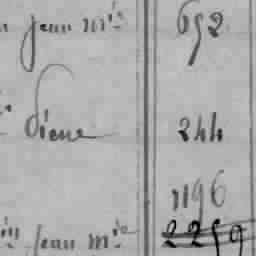 jean m.ie 652
Pierre 244
1196
jean m.ie 2259